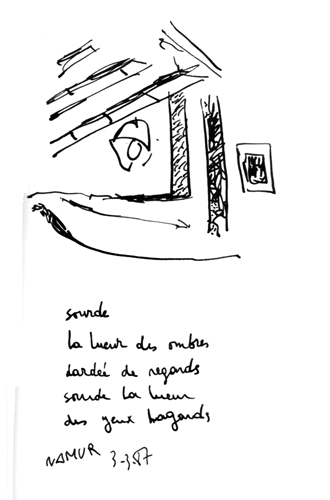 sourde
la lueur des ombres
dardée de regards
sourde la lueur
des yeux hagards
NAMUR 3-3-87